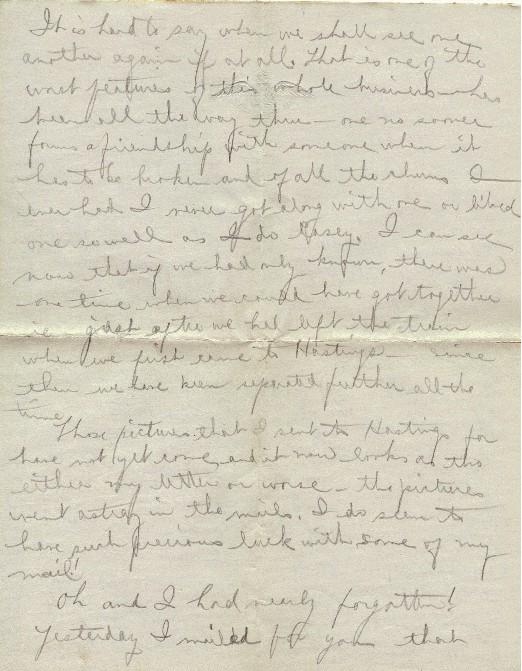 It is hard to say when we shall see one
another again if at all. That is one of the
worst features of this whole business - has
been all the way thru - one no sooner
forms a friendship with someone when it
has to be broken and of all the chums I
ever had I never got along with one or liked
one so well as I do Casey. I can see
now that if we had only known, there was
one time when we could have got together
ie. just after we had left the train
when we first came to Hastings - since
then we have been separated further all the
time.
Those pictures that I sent to Hastings for
have not yet come and it now looks as tho
either my letter or worse - the pictures
went astray in the mails. I do seem to
have such precious luck with some of my
mail!
Oh and I had nearly forgotten!
Yesterday I mailed for you that